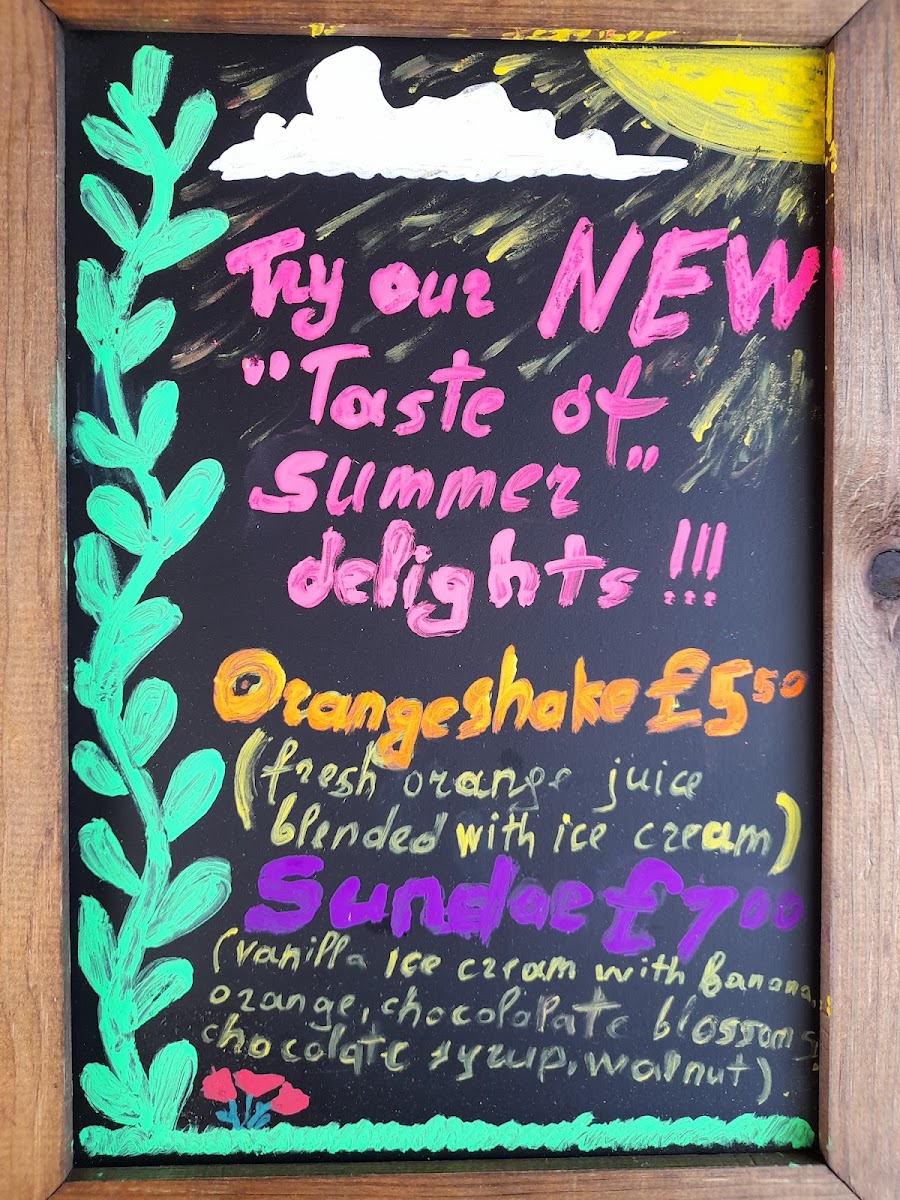 Try our NEW
"Taste of
summer"
delights !!!
Orangeshake £5 50
(fresh orange juice
blended with ice cream)
Sundae £7 00
(vanilla ice cream with banana,
orange, chocolalate blossoms,
chocolate syrup, walnut)